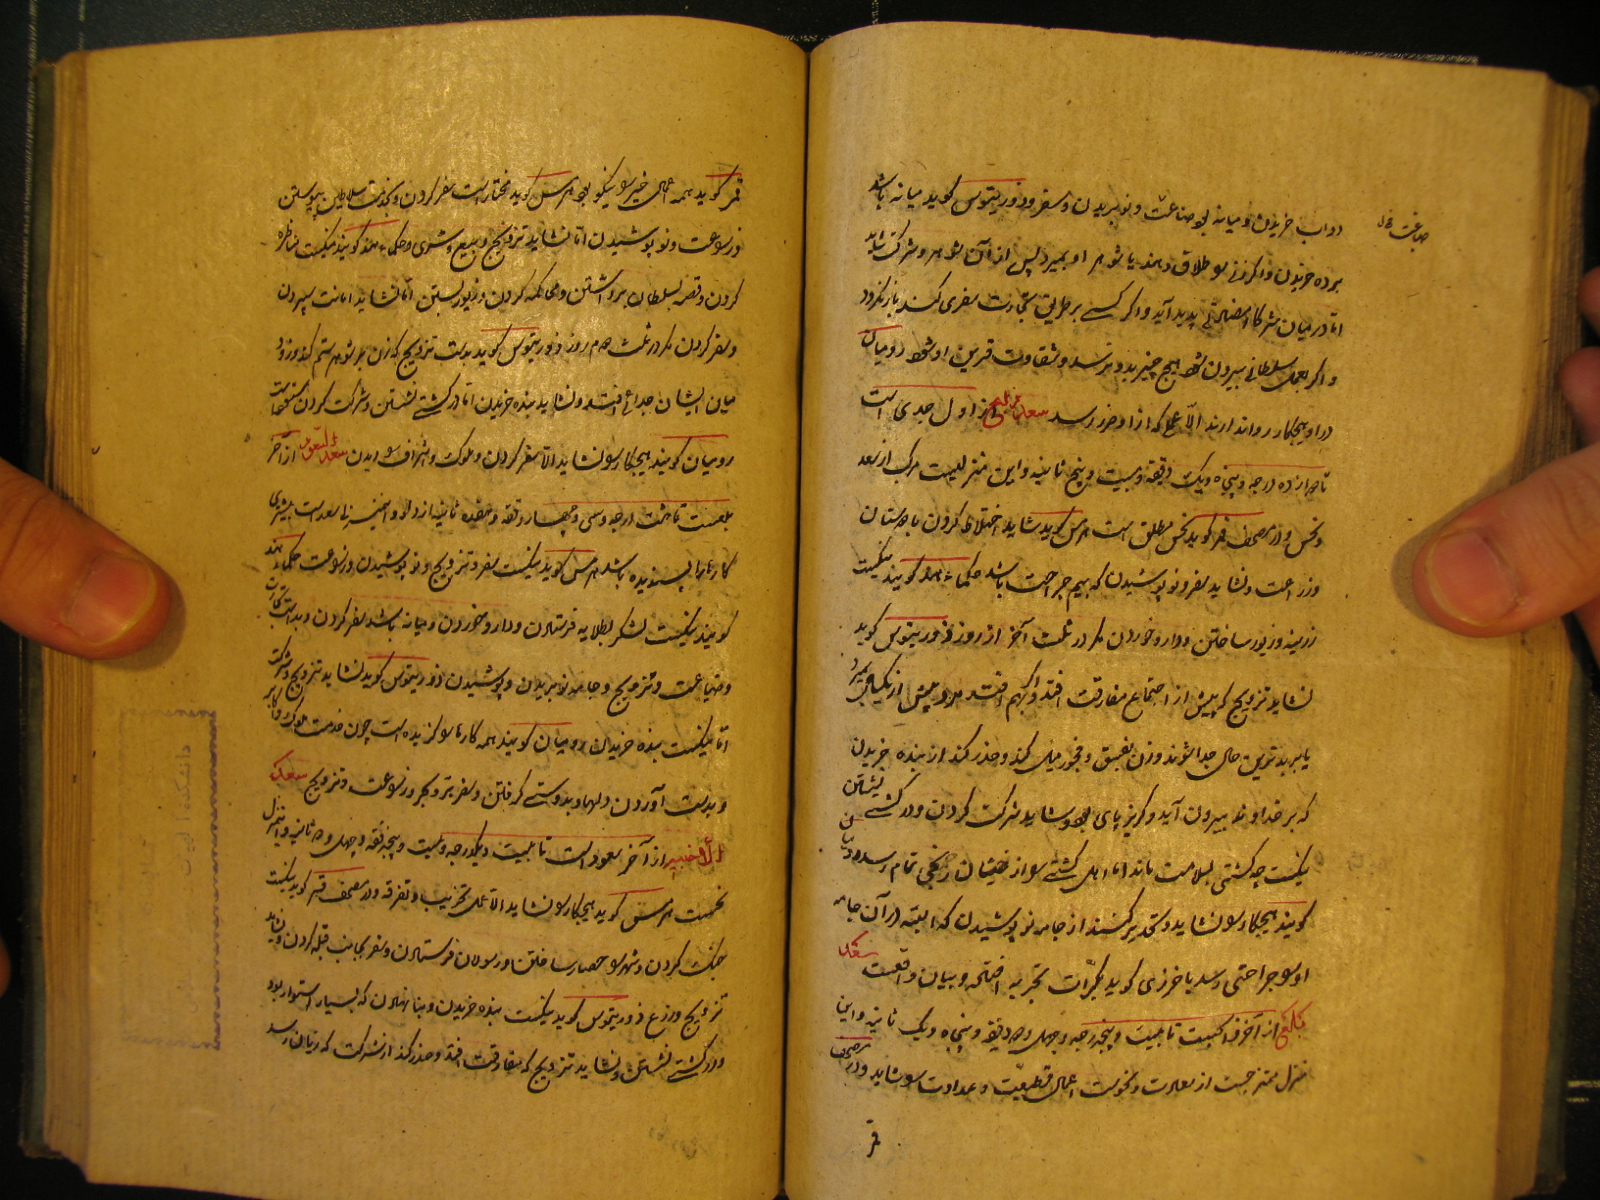 دواب خریدن و میانه بود صناعت و نو بریدن و سفر و ذوریتوس کوید میانه باشد
صناعت
برده خریدن و اکر زنی را طلاق دهند یا شوهر او بمیرد پس از آن شوهر و شرکت نشاید
اما در میان شرکا پدید آید و اکر کسی بر طریق تجارت سفری کند باز نکردد
و اکر بعمل سلطانی بیرون شود هیچ چیز بدو نرسد و شقاوت قرین او شود رومیان
در او هیچکار روا ندارند الا عملی که از او ضرر رسد سعد ذابح از اول جدی است
تا دوازده درجه و پنجاه و یک دقیقه و بیست و پنج ثانیه و این منزلیست مرکب از سعد
و نحس و در مصحف قمر کوید نحس مطلق است هرمس کوید شاید اختلاط کردن با دوستان
و زراعت و نشاید سفر و نو پوشیدن که بیم جراحت باشد حکماء هند کویند نیکست
زرینه و زیور ساختن و دارو خوردن مکر در ثلث آخر از روز ذوریتوس کوید
نشاید تزویج که پیش از اجتماع مفارقت افتد و اکر بهم افتد مرد پیش از یکسال بمیرد
یا ببدترین حالی جدا شوند و زن بفسق و فجور میل کند و حذر کند از بنده خریدن
که بر خداوند بیرون آید و کریز پای بود و شاید شرکت کردن و در کشتی نشستن
نیکست چه کشتی بسلامت ماند اما اهل کشتی را از رنجی تمام رسد رومیان
کویند هیچکار را نشاید و تحذیر کنند از جامه نو پوشیدن که البته در آن جامه
او را جراحتی رسد باخرزی کوید بکرات تجربه افتاد و بیان واقعست سعد
بلع از آخر تا بیست و پنج درجه و چهل و دو دقیقه و پنجاه و یک ثانیه و این
منزل ممتزجست از سعادت و نحوست اعمال قطیعت و عداوت را شاید و در مصحف
قمر
قمر کوید همه اعمال خیر را نیکو بود هرمس کوید مختار است سفر کردن و بخدمت سلاطین پیوستن
و زراعت و نو پوشیدن اما نشاید تزویج و بیع و شری و حکماء هند کویند نیکست مناظره
کردن و قصه بسلطان برداشتن و محاکمه کردن و زیور بستن اما نشاید امانت سپردن
و سفر کردن مکر در ثلث دوم روز ذوریتوس کوید بدست تزویج که زن بر شوهر ستم کند و زود
میان ایشان جدائی افتد و نشاید بنده خریدن اما در کشتی نشستن و شرکت کردن
رومیان کویند هیچکار را نشاید الا سفر کردن و ملوک و اشراف را دیدن سعد السعود از آخر
بلعست تا هشت درجه و سی و چهار دقیقه و هفده ثانیه از دلو و این سعد است بیشتری
کارها را پسندیده باشد هرمس کوید نیکست سفر و تزویج و نو پوشیدن و زراعت حکماء هند
کویند نیکست لشکر بطلایه فرستادن و دارو خوردن و میانه باشد سفر کردن و بداست تجارت
و ضیاعت و تزویج و جامه نو بریدن و پوشیدن ذوریتوس کوید نشاید تزویج و شرکت
اما نیکست بنده خریدن رومیان کویند همه کارها را کزیده است چون خدمت ملوک و اکابر
و بدست آوردن دلها و بدوستی کرفتن و سفر بر و بحر و زراعت و تزویج سعد
الاخبیه از آخر سعود است تا بیست و یکدرجه و بیست و پنج دقیقه و چهل و دو ثانیه و این منزل
نحسست هرمس کوید هیچکار را نشاید الا عمل تخریب و تفرقه و در مصحف قمر کوید نیکست
جنک کردن و شهر و حصار ساختن و رسولان فرستادن و سفر بجانب قبله کردن و نشاید
تزویج و زرع ذوریتوس کوید نیکست بنده خریدن و بنا نهادن که بسیار استوار بود
و در کشتی نشستن و نشاید تزویج که مفارقت افتد و حذر کند از شرکت که زیان رسد